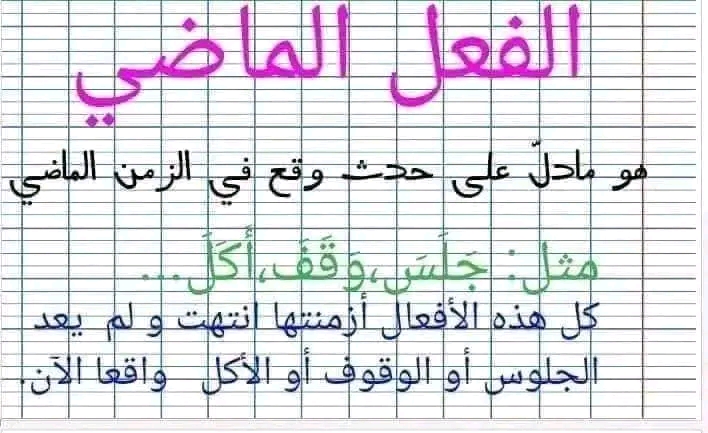 الفعل الماضي
هو مادلّ على حدث وقع في الزمن الماضي
مثل: جَلَسَ،وَقَفَ،أَكَلَ...
كل هذه الأفعال أزمنتها انتهت و لم يعد
الجلوس أو الوقوف أو الأكل واقعا الآن.